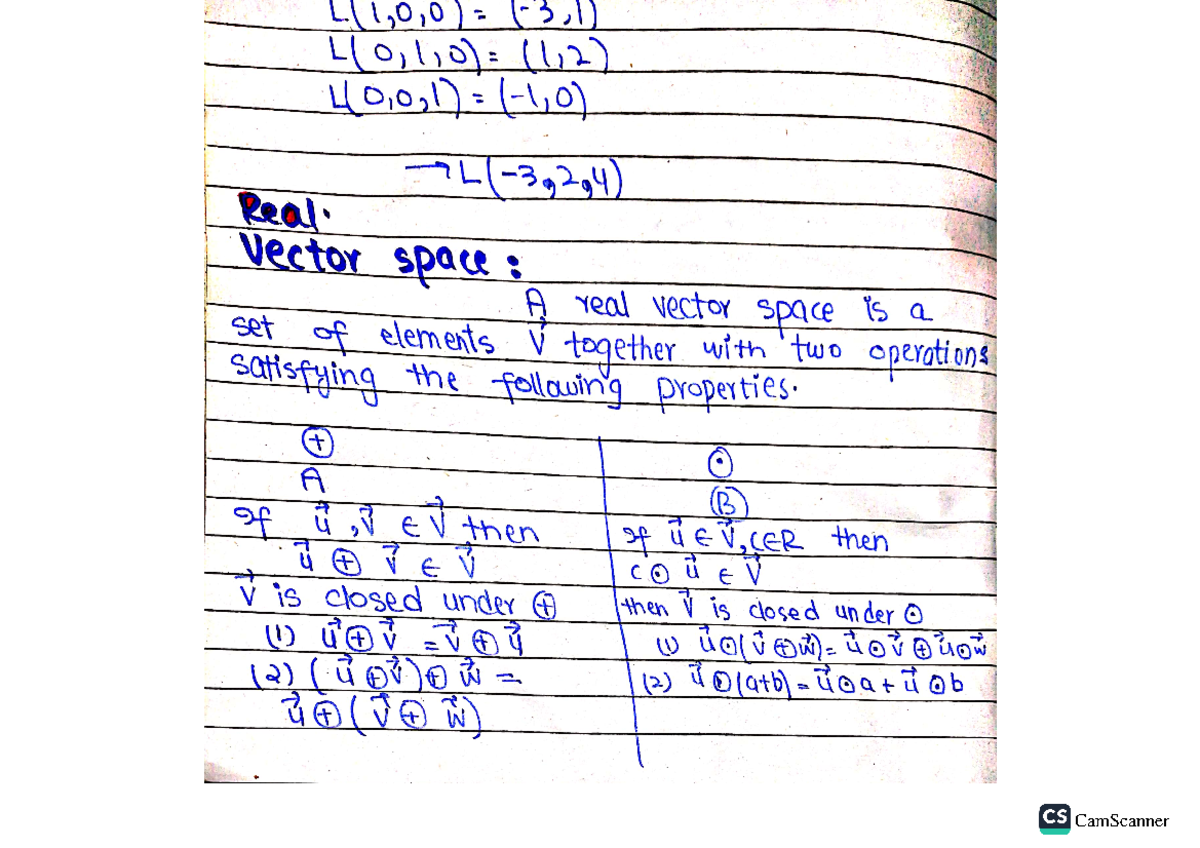 L(1,0,0) = (-3,1)
L(0,1,0) = (1,2)
L(0,0,1) = (-1,0)
→ L(-3,2,4)
Real.
Vector space :
A real vector space is a
set of elements V⃗ together with two operations
satisfying the following properties.
⊕
A
If u⃗, v⃗ ∈ V⃗ then
u⃗ ⊕ v⃗ ∈ V⃗
V⃗ is closed under ⊕
(1) u⃗ ⊕ v⃗ = v⃗ ⊕ u⃗
(2) (u⃗ ⊕ v⃗) ⊕ w⃗ =
u⃗ ⊕ (v⃗ ⊕ w⃗)
⊙
(B)
If u⃗ ∈ V⃗, C∈R then
c ⊙ u⃗ ∈ V⃗
then V⃗ is closed under ⊙
(1) u⃗ ⊙ (v⃗ ⊕ w⃗) = u⃗ ⊙ v⃗ ⊕ u⃗ ⊙ w⃗
(2) u⃗ ⊙ (a+b) = u⃗ ⊙ a + u⃗ ⊙ b
CS CamScanner